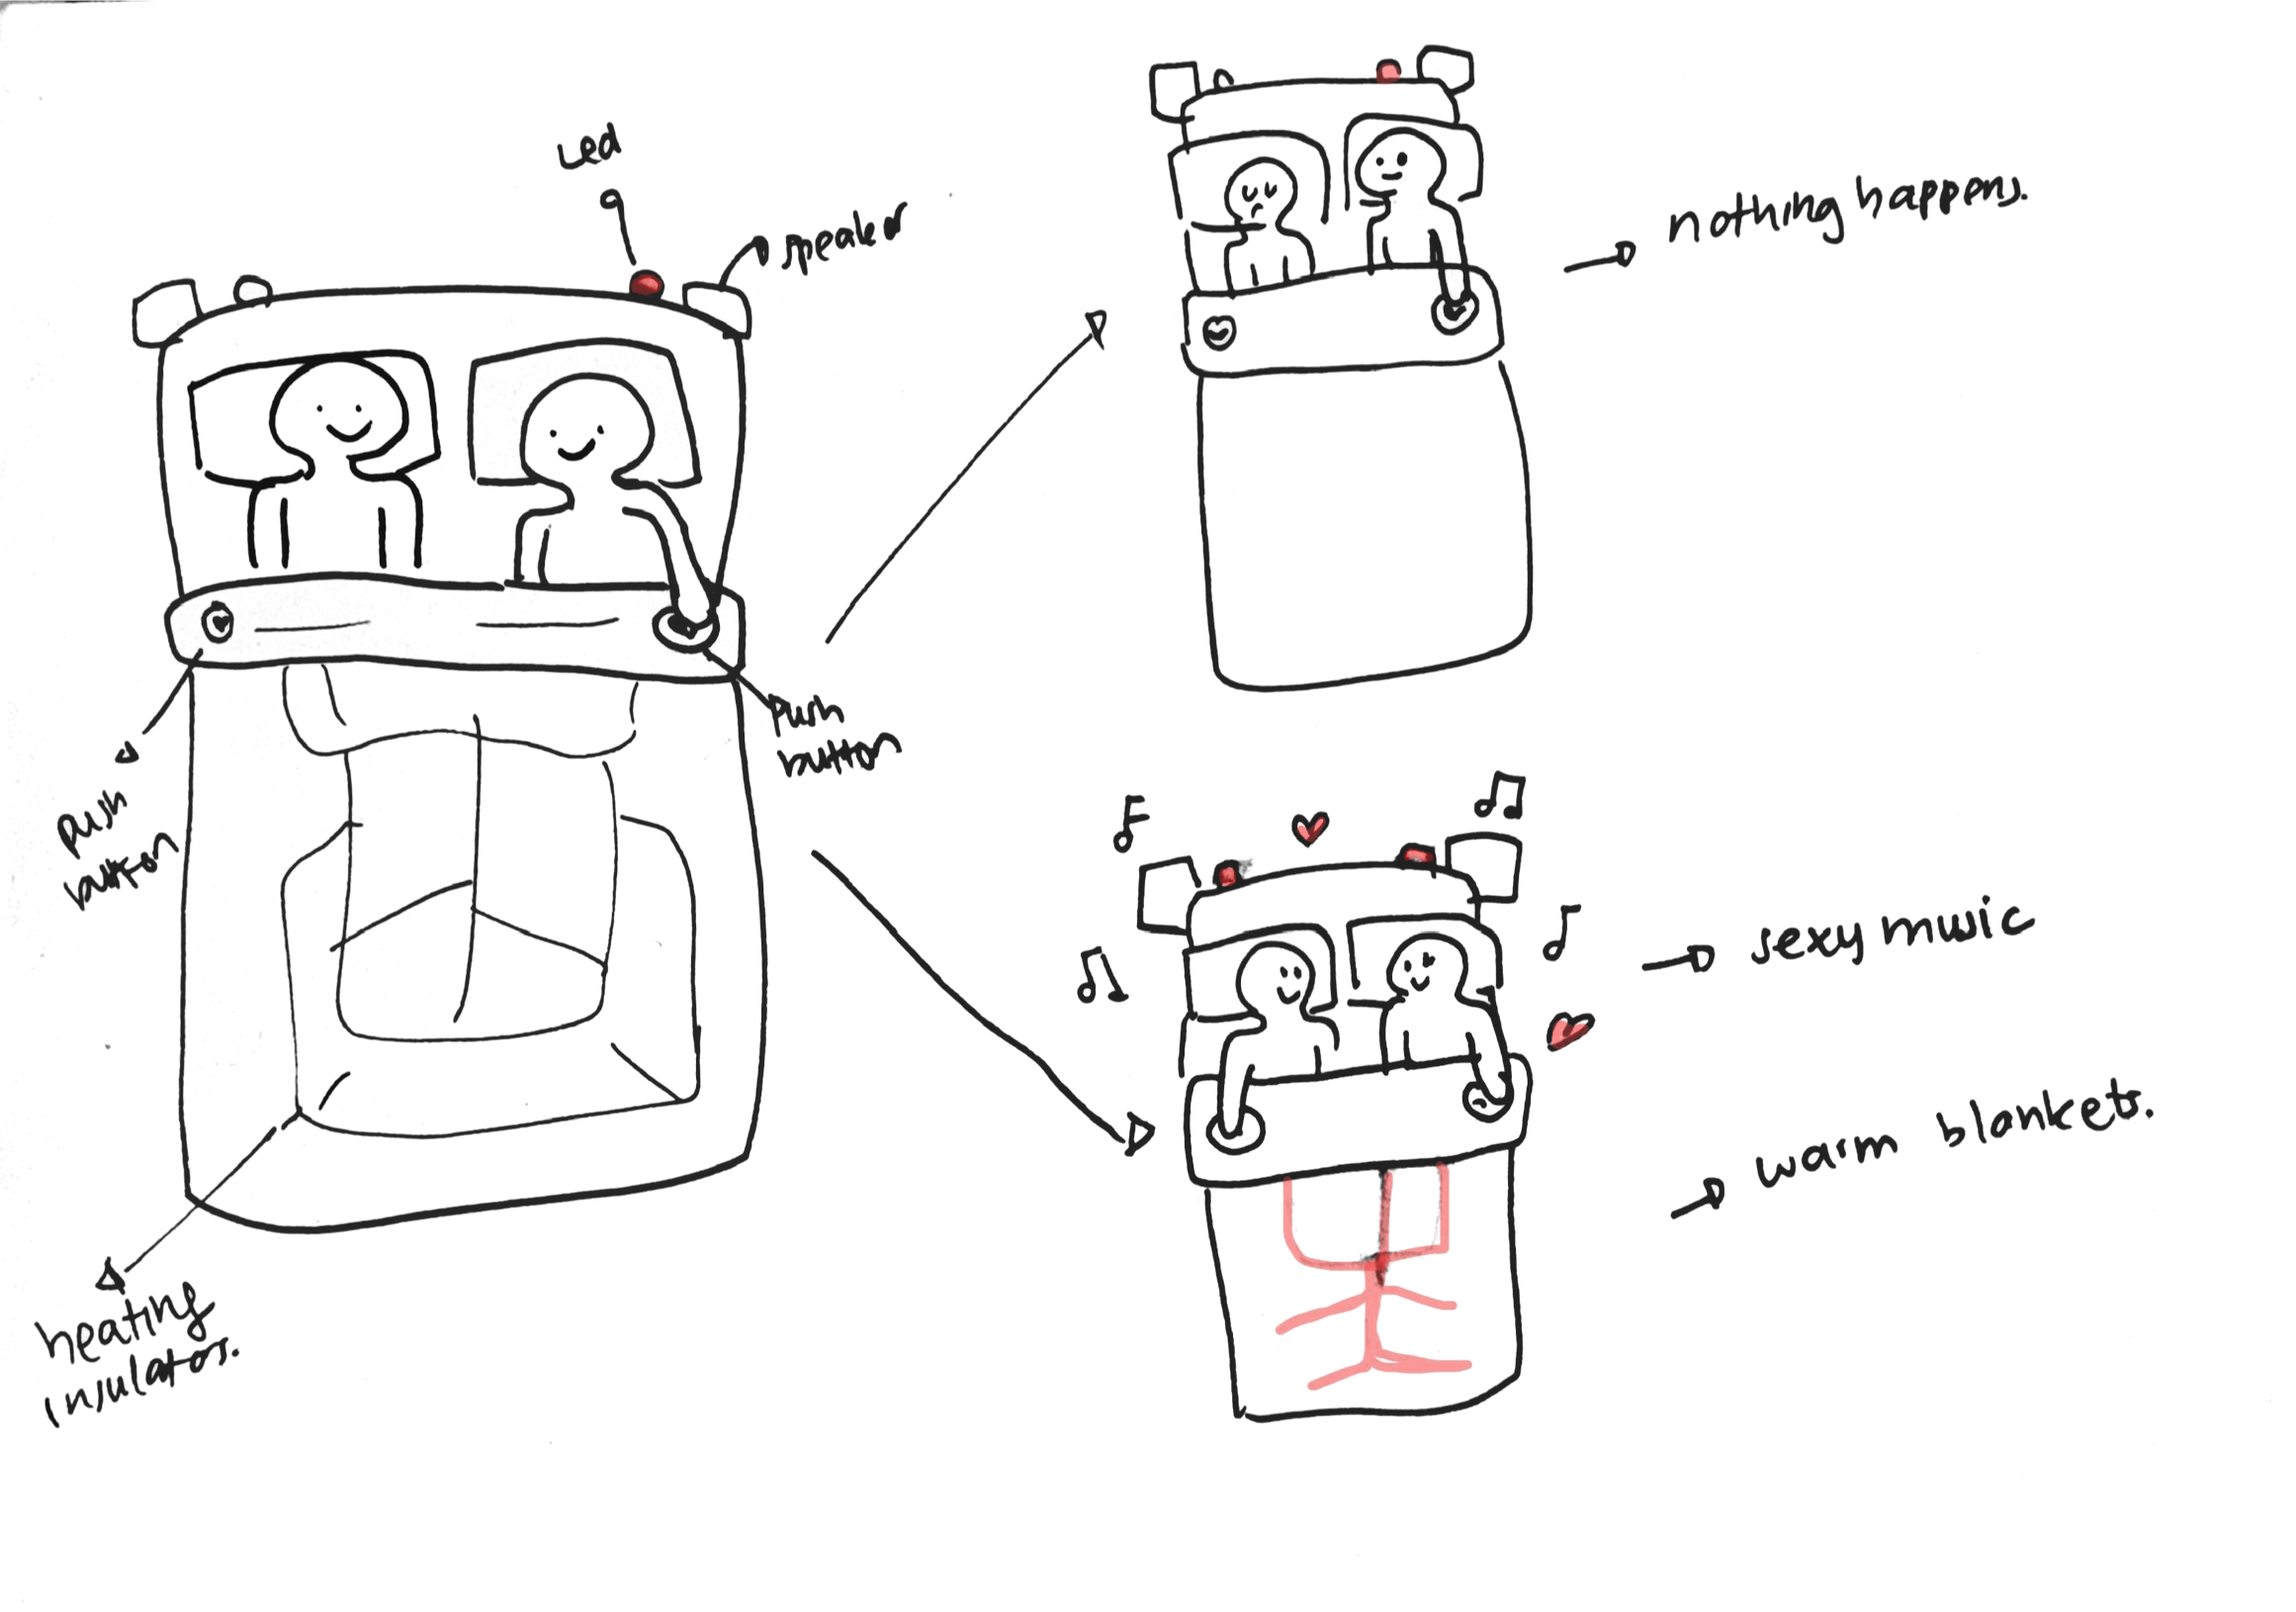 Led
speaker
push
button
push
button
heating
insulators.
nothing happens.
sexy music
warm blankets.